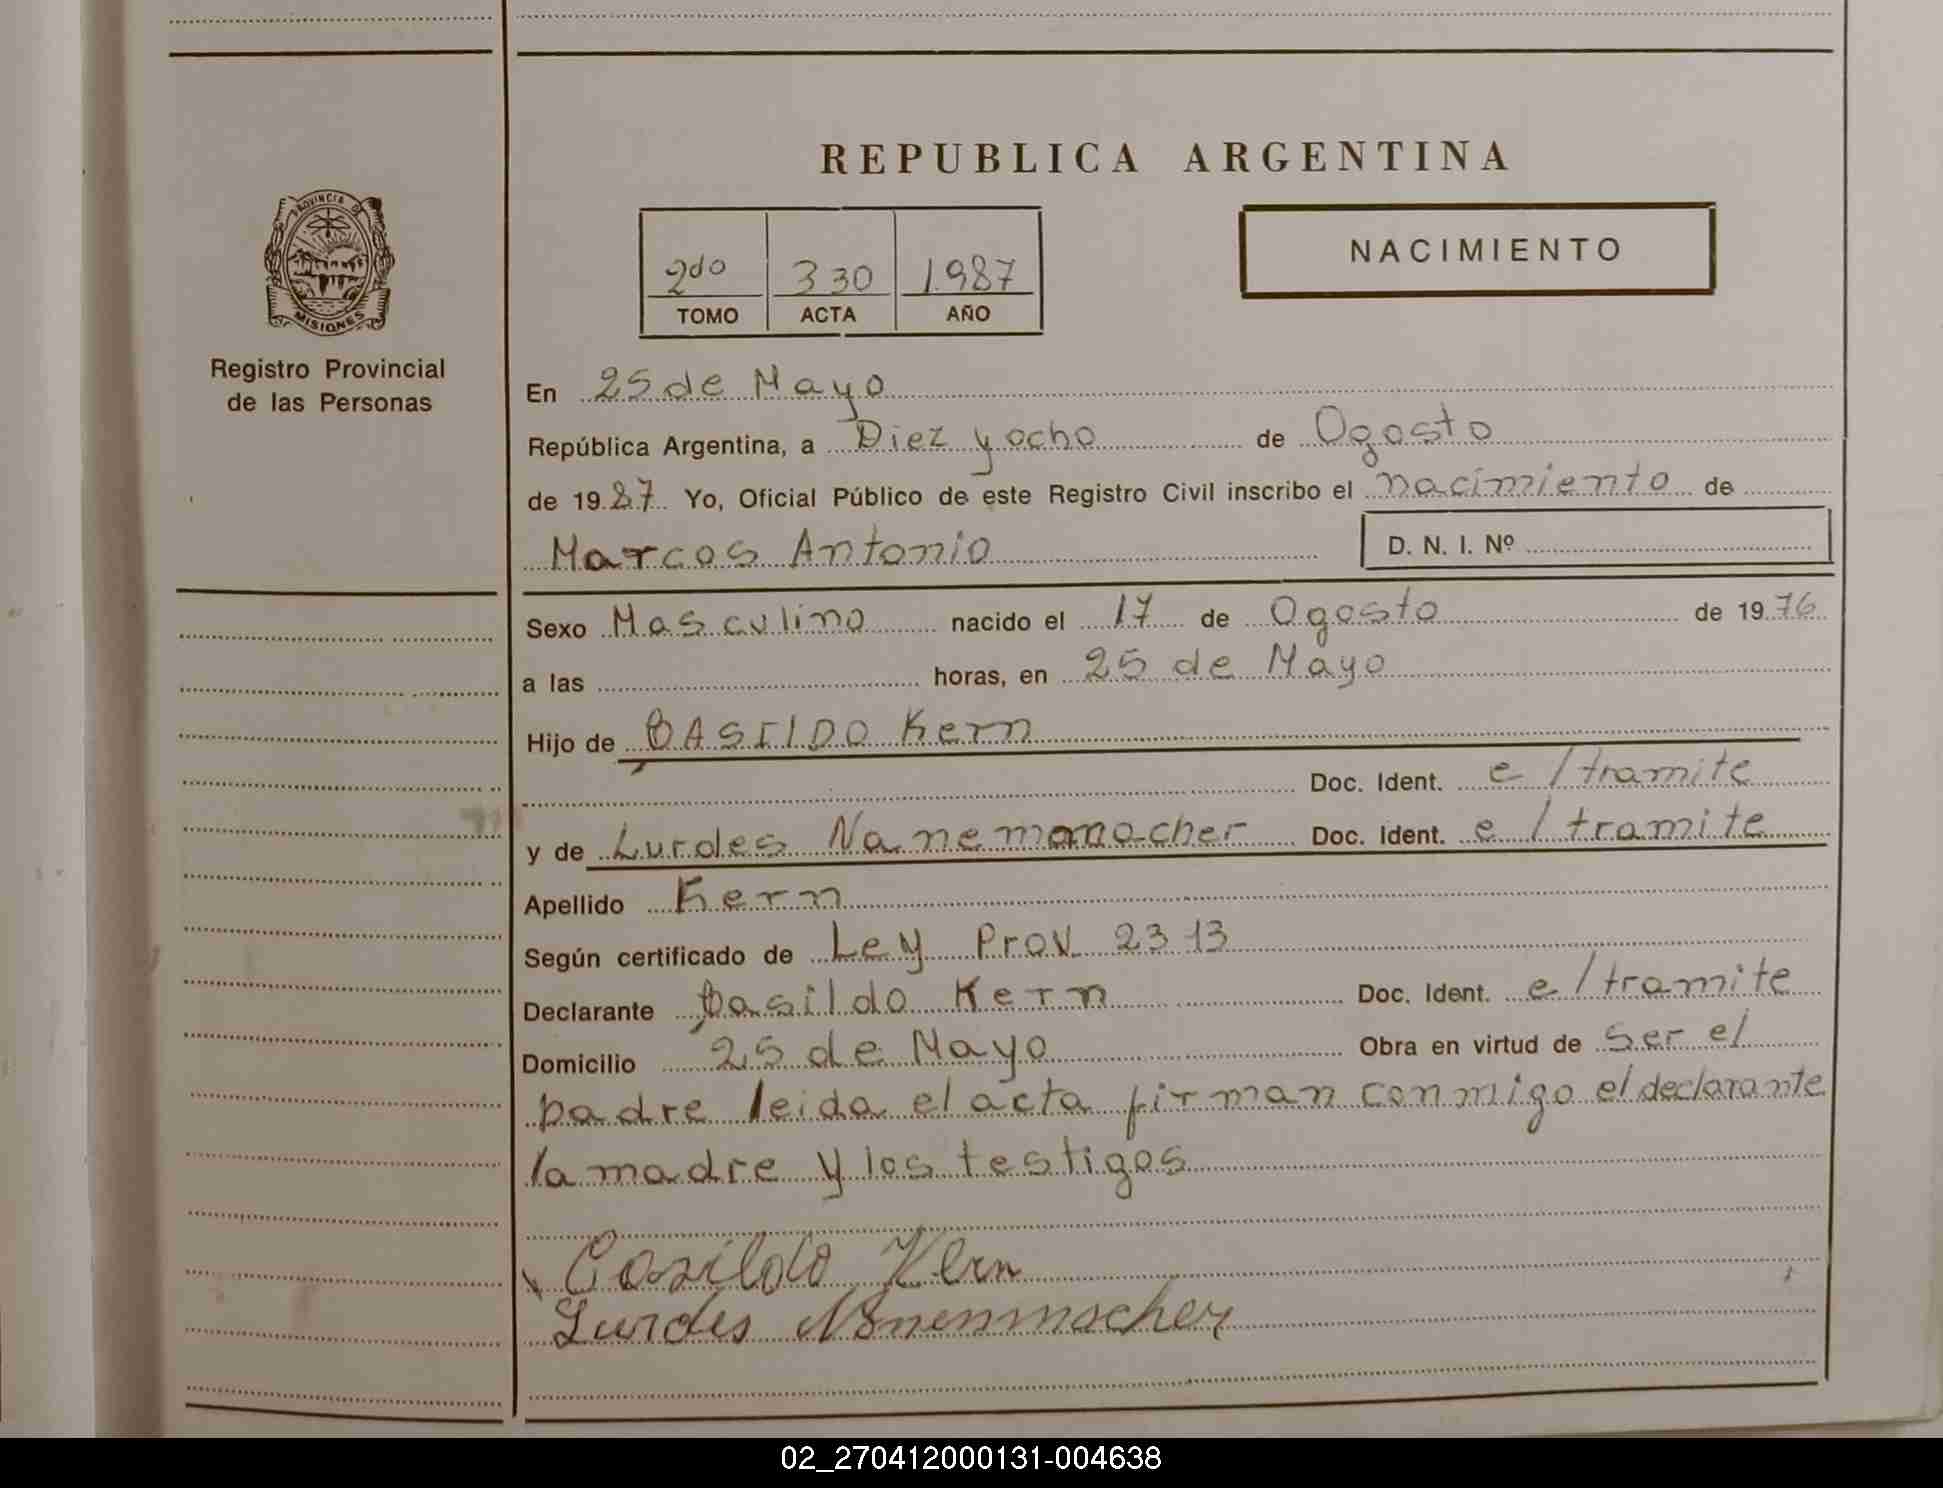 REPUBLICA ARGENTINA
PROVINCIA DE
MISIONES
Registro Provincial
de las Personas
2do 330 1.987
TOMO ACTA AÑO
NACIMIENTO
En 25 de Mayo
República Argentina, a Diez y ocho de Ogosto
de 1987 Yo, Oficial Público de este Registro Civil inscribo el nacimiento de
Marcos Antonio D. N. I. Nº
Sexo Masculino nacido el 17 de Ogosto de 1976
a las horas, en 25 de Mayo
Hijo de Kern
Doc. Ident. e/tramite
y de Lurdes Doc. Ident. e/tramite
Apellido Kern
Según certificado de Ley Prov. 2313
Declarante Kern Doc. Ident. e/tramite
Domicilio 25 de Mayo Obra en virtud de ser el
padre leida el acta firman conmigo el declarante
la madre y los testigos
Casildo Kern
Lurdes
02_270412000131-004638